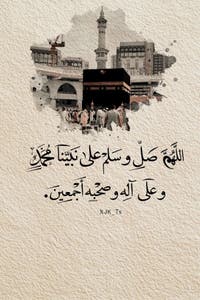 اللَّهُمَّ صَلِّ وسَلم على نَبيّنا مُحَمَّدٍ
وعَلى آلِهِ وصَحْبِهِ أَجْمَعينَ.
XJK_Ts